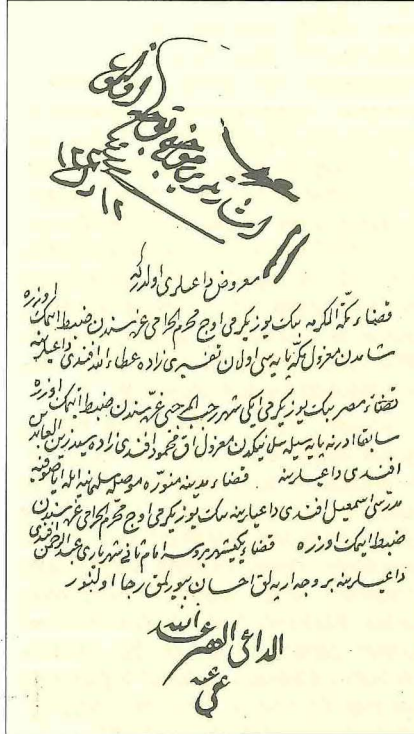 اشارتلری موجبنجه توجیه اولنه
معروض داعیلری اولدر که
قضاء مکّة المکرمه بیک یوز یکرمی اوچ محرم الحرامی غرّه سندن ضبط ایتمک اوزره
شامدن معزول مکّه پایه سی اولان تفسیری زاده عطاء الله افندی داعیلرینه
قضاء مصر بیک یوز یکرمی ایکی شهر رجب المرجبی غرّه سندن ضبط ایتمک اوزره
سابقا ادرنه پایه سیله سلانیکدن معزول اق محمود افندی زاده سید زین العابدین
افندی داعیلرینه قضاء مدینه منوّره موصله سلیمانیه ایله ایاصوفیه
مدرّسی اسمعیل افندی داعیلرینه بیک یوز یکرمی اوچ محرّم الحرامی غرّه سندن
ضبط ایتمک اوزره قضاء یکیشهر بروسه امام ثانئ شهریاری عبد الرحمن افندی
داعیلرینه بر وجه ارپه لق احسان بیورلمق رجا اولنور
الداعی الفقیر عبد الله
عفی عنه